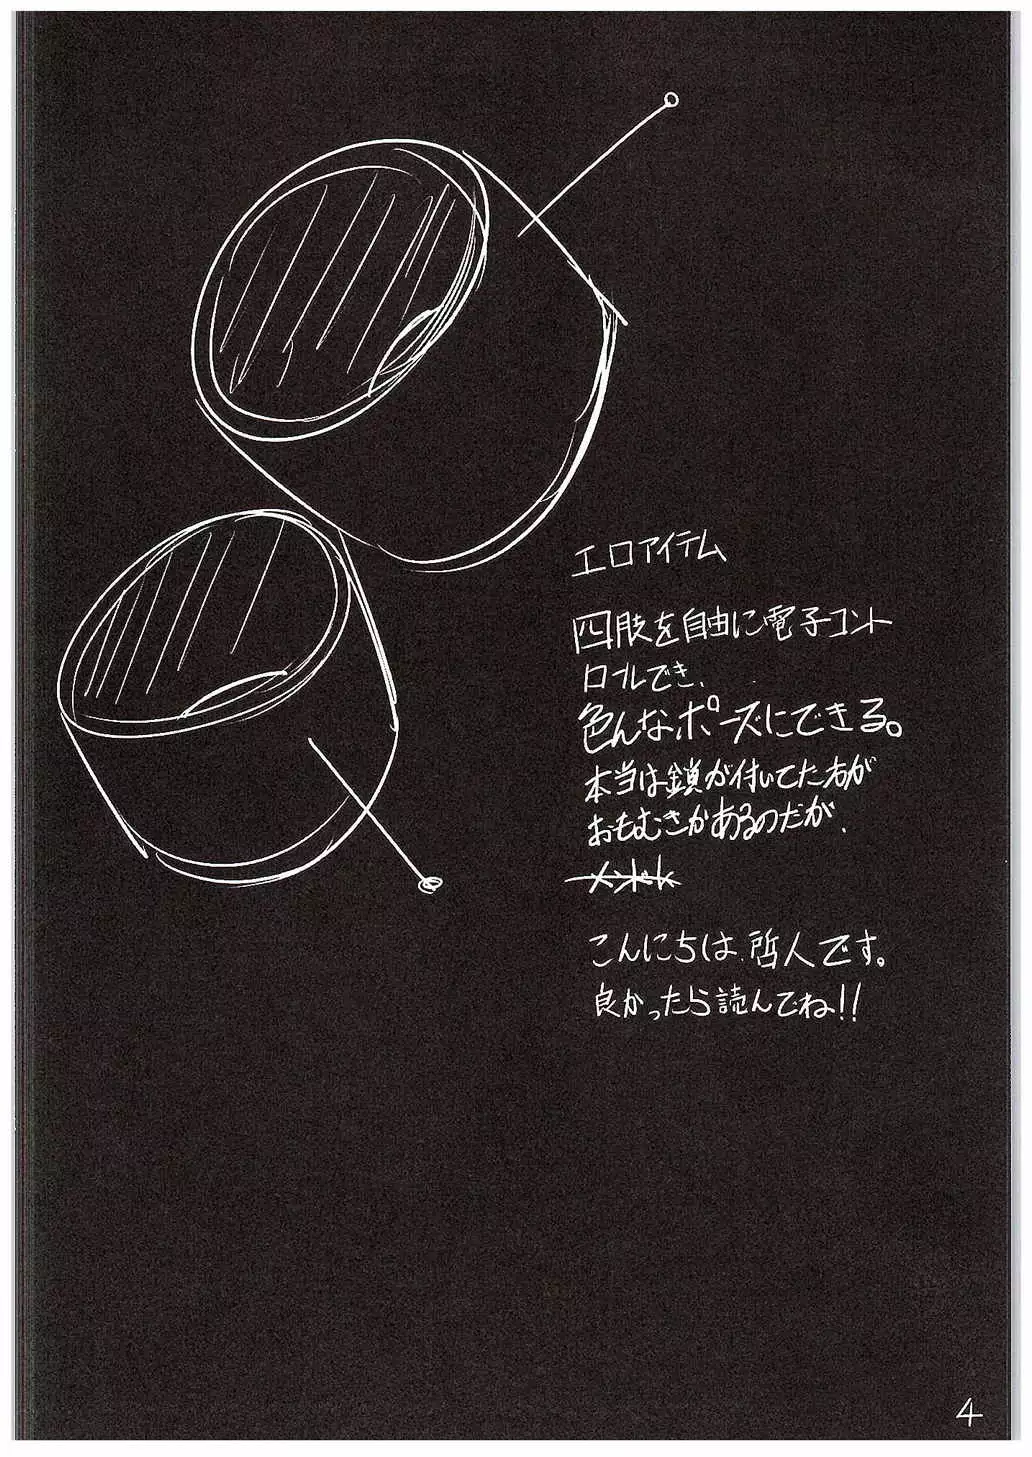 エロアイテム
四肢を自由に電子コント
ロールでき、
色んなポーズにできる。
本当は鎖が付いてた方が
おもむきがあるのだが、
こんにちは、哲人です。
良かったら読んでね!!
4